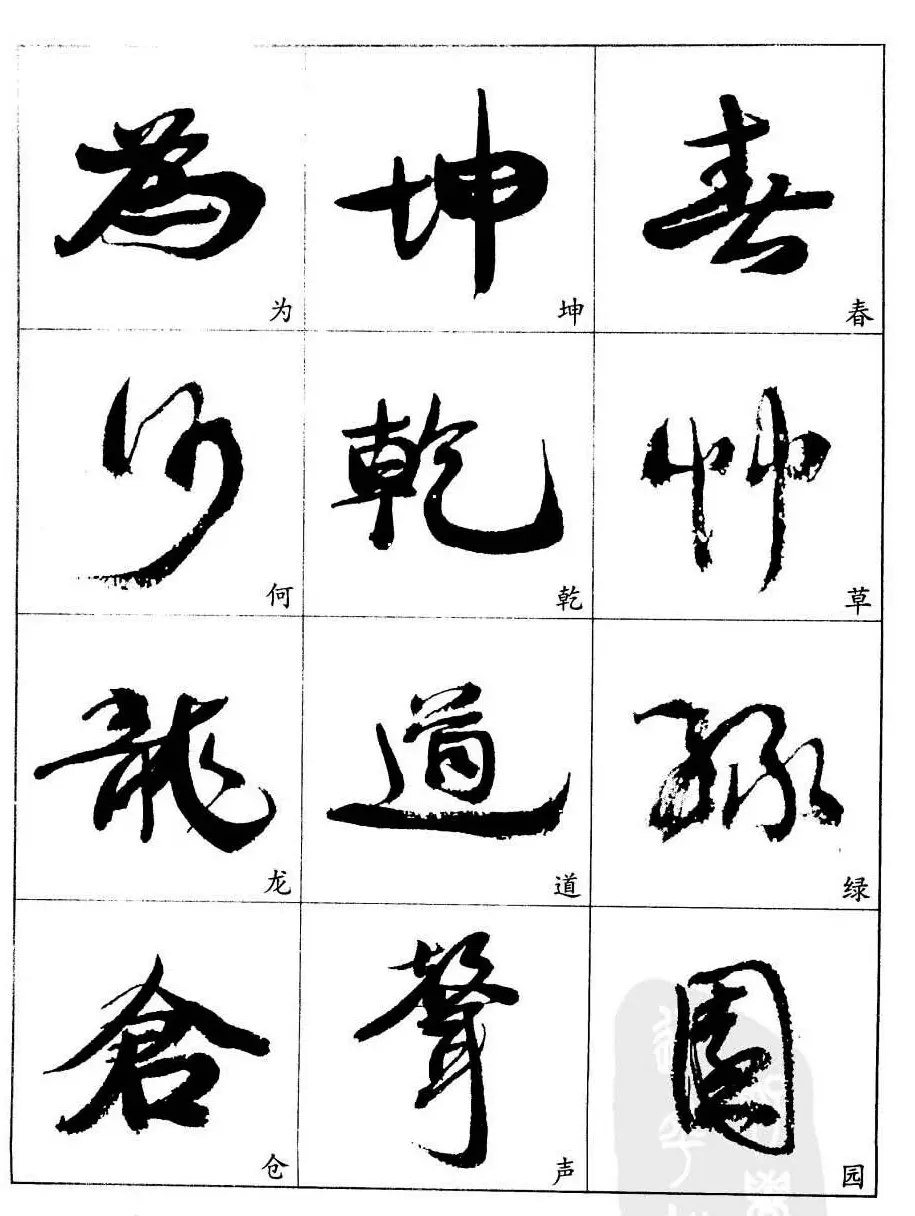 春
春
艸
草
綠
绿
園
园
坤
坤
乾
乾
道
道
聲
声
為
为
何
何
龍
龙
倉
仓